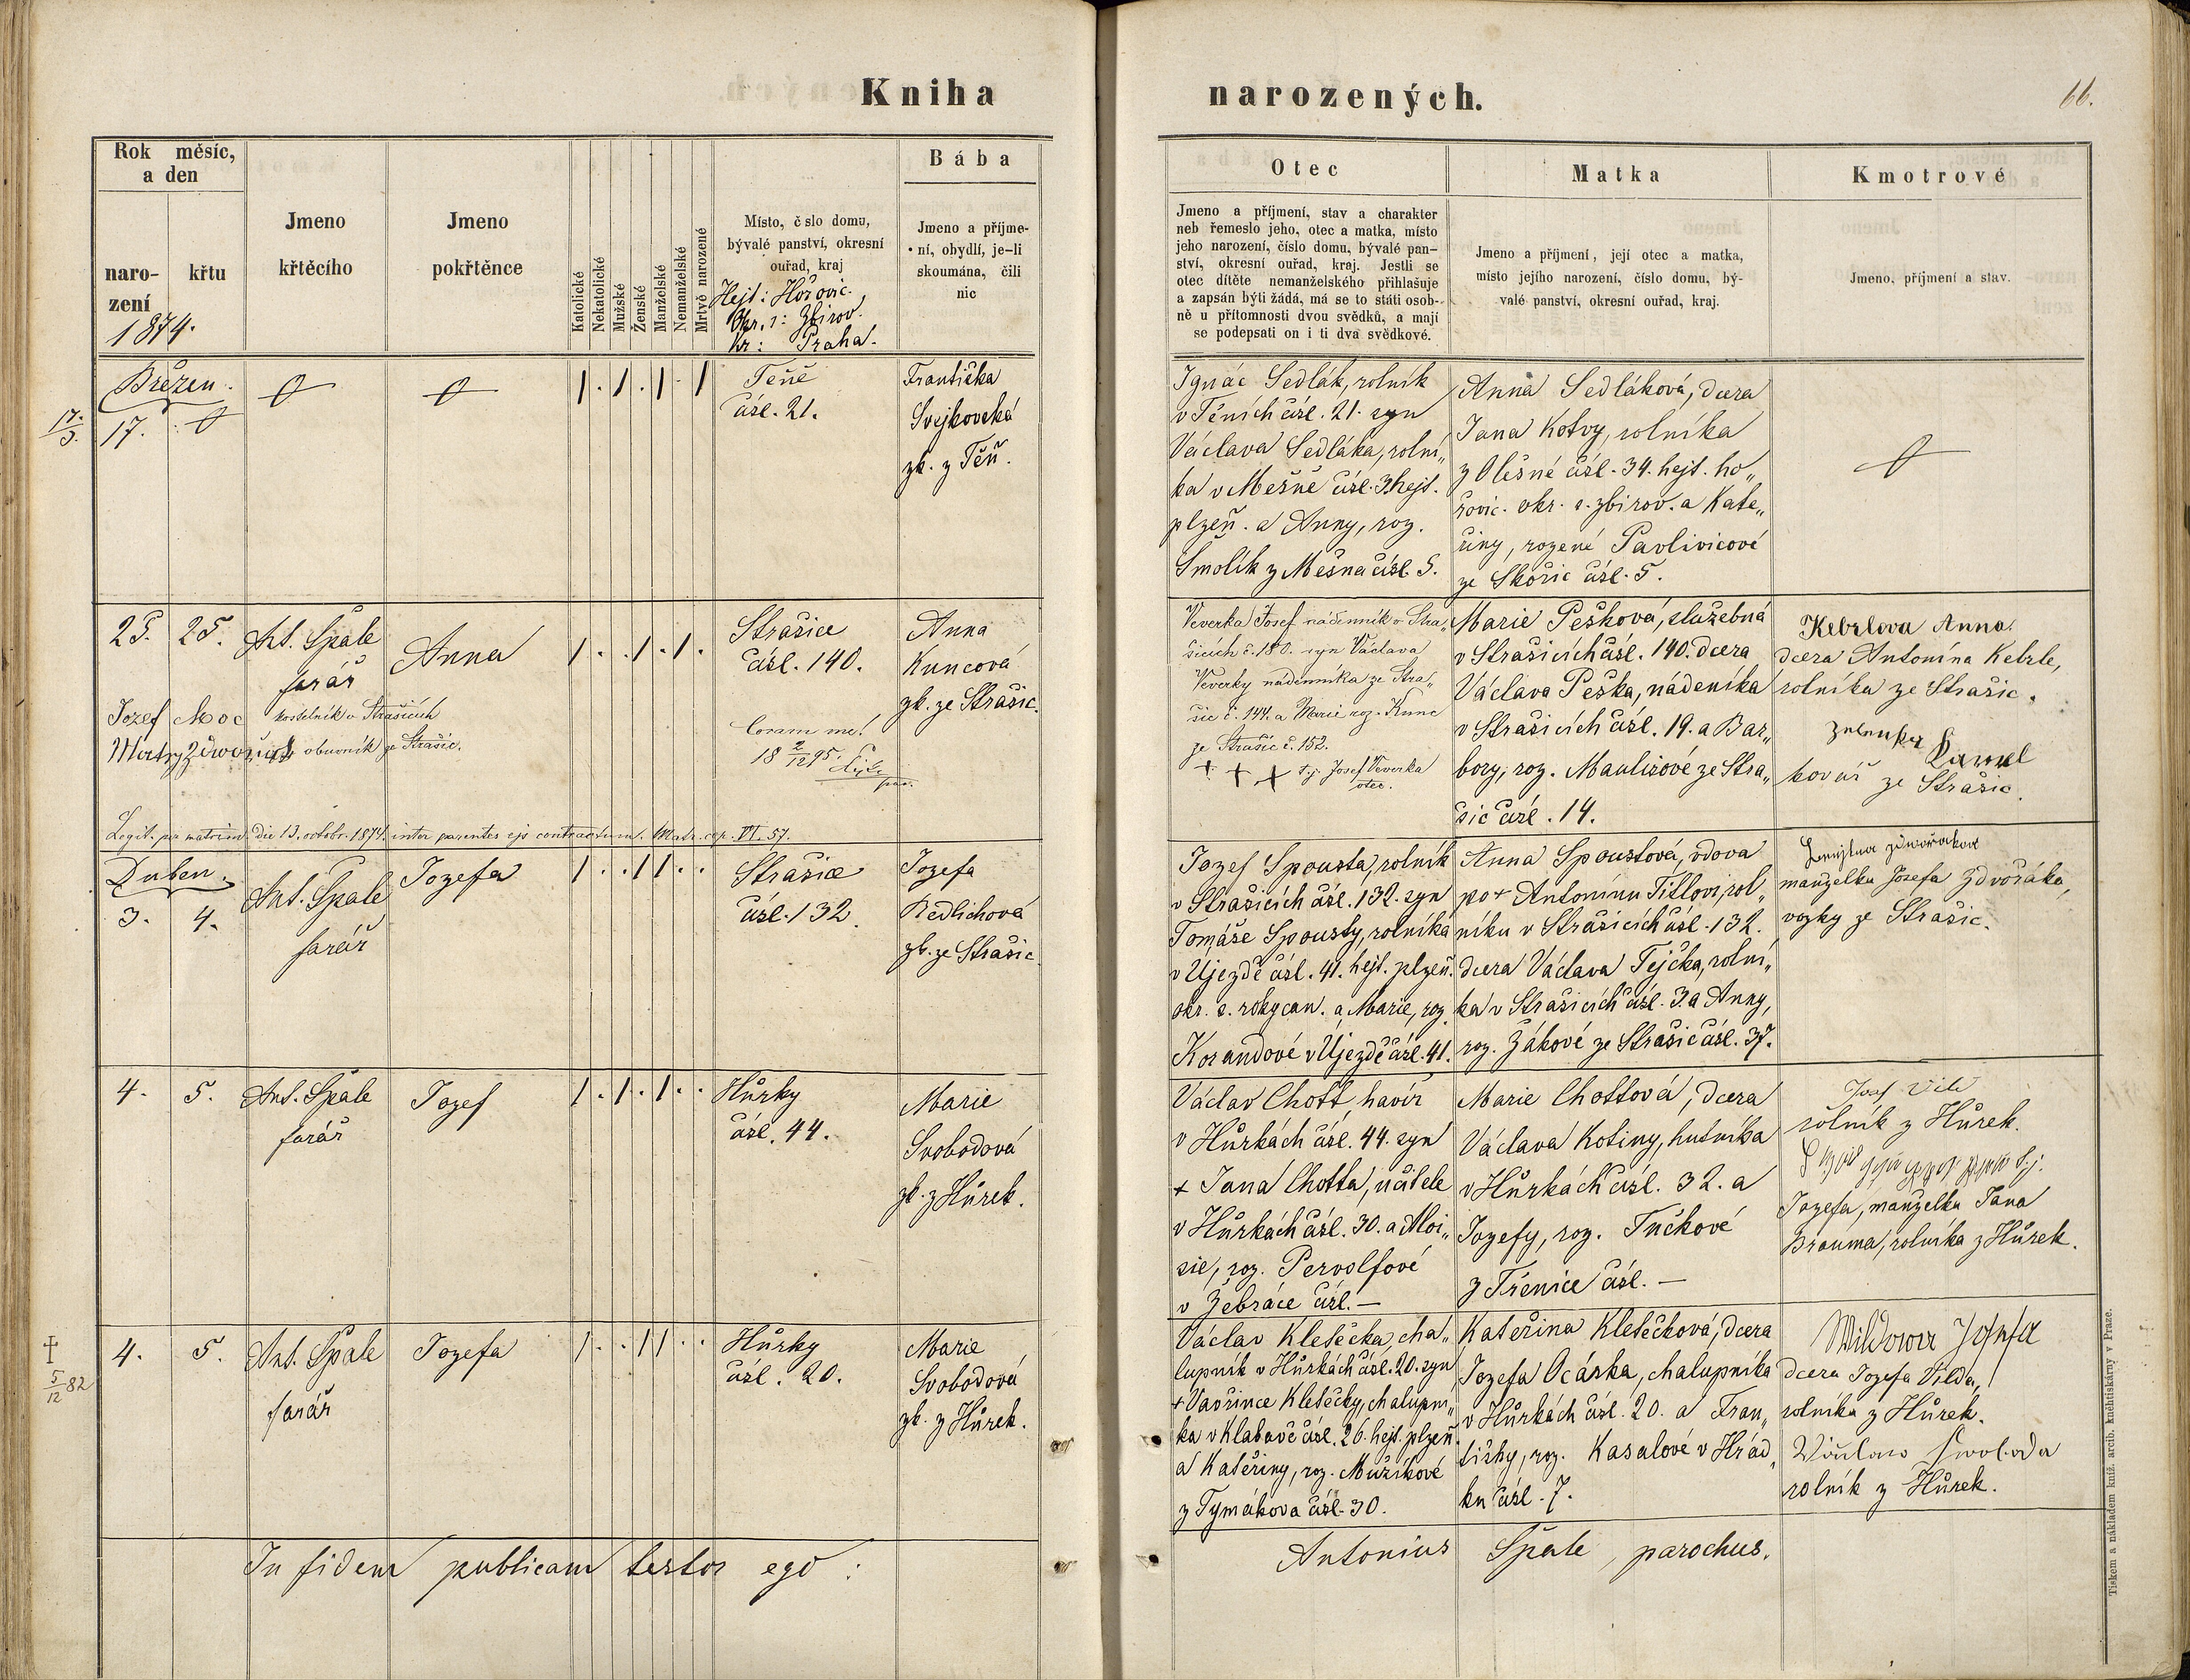 Kniha narozených.
66.
Rok měsíc,
a den
naro-
zení
křtu
1874.
Jmeno
křtěcího
Jmeno
pokřtěnce
Katolické
Nekatolické
Mužské
Ženské
Manželské
Nemanželské
Mrtvě narozené
Místo, č slo domu,
bývalé panství, okresní
ouřad, kraj
Hejt: Hořovic.
Okr. s: Zbirov.
Kr: Praha.
Bába
Jmeno a příjme-
ní, obydlí, je-li
skoumána, čili
nic
Otec
Jmeno a příjmení, stav a charakter
neb řemeslo jeho, otec a matka, místo
jeho narození, číslo domu, bývalé pan-
ství, okresní ouřad, kraj. Jestli se
otec dítěte nemanželského přihlašuje
a zapsán býti žádá, má se to státi osob-
ně u přítomnosti dvou svědků, a mají
se podepsati on i ti dva svědkové.
Matka
Jmeno a příjmení, její otec a matka,
místo jejího narození, číslo domu, bý-
valé panství, okresní ouřad, kraj.
Kmotrové
Jmeno, příjmení a stav.
Březen.
17.
17./3.
Těně
čísl. 21.
Františka
Svejkovská
zk. z Těň.
Ignác Sedlák, rolník
v Těních čísl. 21. syn
Václava Sedláka, rolní„
ka v Mešně čísl. 3. hejt.
plzeň. a Anny, roz.
Smolík z Mešna čísl. 5.
Anna Sedláková, dcera
Jana Kotvy, rolníka
z Olešné čísl. 34. hejt. ho„
řovic. okr. s. zbirov. a Kate„
řiny, rozené Pavlivicové
ze Skořic čísl. 5.
25. 25.
Ant. Špale
farář
Anna
Strašice
čísl. 140.
Anna
Kuncová
zk. ze Strašic.
Jozef Moc kostelník v Strašicích
obuvník ze Strašic.
Coram me!
18 2/12 95.
Veverka Josef nádenník v Stra„
šicích č. 180. syn Václava
Veverky nádenníka ze Stra„
šic č. 144. a Marie roz. Kunc
ze Strašic č. 152.
+ + + t.j. Josef Veverka
otec.
Marie Pešková, služebná
v Strašicích čísl. 140. dcera
Václava Peška, nádeníka
v Strašicích čísl. 19. a Bar„
bory, roz. Maulisové ze Stra„
šic čísl. 14.
Kebrlova Anna.
dcera Antonína Kebrle,
rolníka ze Strašic.
Zelenka Karel
kovář ze Strašic.
Legit. per matrim. die 13. octobr. 1874. inter parentes ejs contractum. Matr. cop. VI. 57.
Duben.
3. 4.
Ant. Špale
farář
Jozefa
Strašice
čísl. 132.
Jozefa
Redlichová
zk. ze Strašic.
Jozef Spousta, rolník
v Strašicích čísl. 132. syn
Tomáše Spousty, rolníka
v Újezdě čísl. 41. hejt. plzeň.
okr. s. rokycan. a Marie, roz.
Korandové v Újezdě čísl. 41.
Anna Spoustová, vdova
po + Antonínu Tittlovi, rol„
níku v Strašicích čísl. 132.
dcera Václava Tejčka, rolní„
ka v Strašicích čísl. 3. a Anny,
roz. Žákové ze Strašic čísl. 37.
manželka Josefa Zdvořáka,
vozky ze Strašic.
4. 5.
Ant. Špale
farář
Jozef
Hůrky
čísl. 44.
Marie
Svobodová
zk. z Hůrek.
Václav Chott, havíř
v Hůrkách čísl. 44. syn
+ Jana Chotta, učitele
v Hůrkách čísl. 30. a Aloi„
sie, roz. Pervolfové
v Žebráce čísl. —
Marie Chottová, dcera
Václava Kotiny, hutníka
v Hůrkách čísl. 32. a
Jozefy, roz. Tučkové
z Třenice čísl. —
rolník z Hůrek.
Jozefa, manželka Jana
Brauma, rolníka z Hůrek.
† 5/12 82
4. 5.
Ant. Špale
farář
Jozefa
Hůrky
čísl. 20.
Marie
Svobodová
zk. z Hůrek.
Václav Kletečka, cha„
lupník v Hůrkách čísl. 20. syn
+ Vavřince Kletečky, chalupní„
ka v Klabavě čísl. 26. hejt. plzeň.
a Kateřiny, roz. Mužíkové
z Tymákova čísl. 30.
Kateřina Kletečková, dcera
Jozefa Ocáska, chalupníka
v Hůrkách čísl. 20. a Fran„
tišky, roz. Kasalové v Hrád„
ku čísl. 7.
Wildowa Josefa
dcera Jozefa Vilda,
rolníka z Hůrek.
Wáclaw Swoboda
rolník z Hůrek.
In fidem publicam testor ego: Antonius Špale, parochus.
Tiskem a nákladem kníž. arcib. knehtiskárny v Praze.